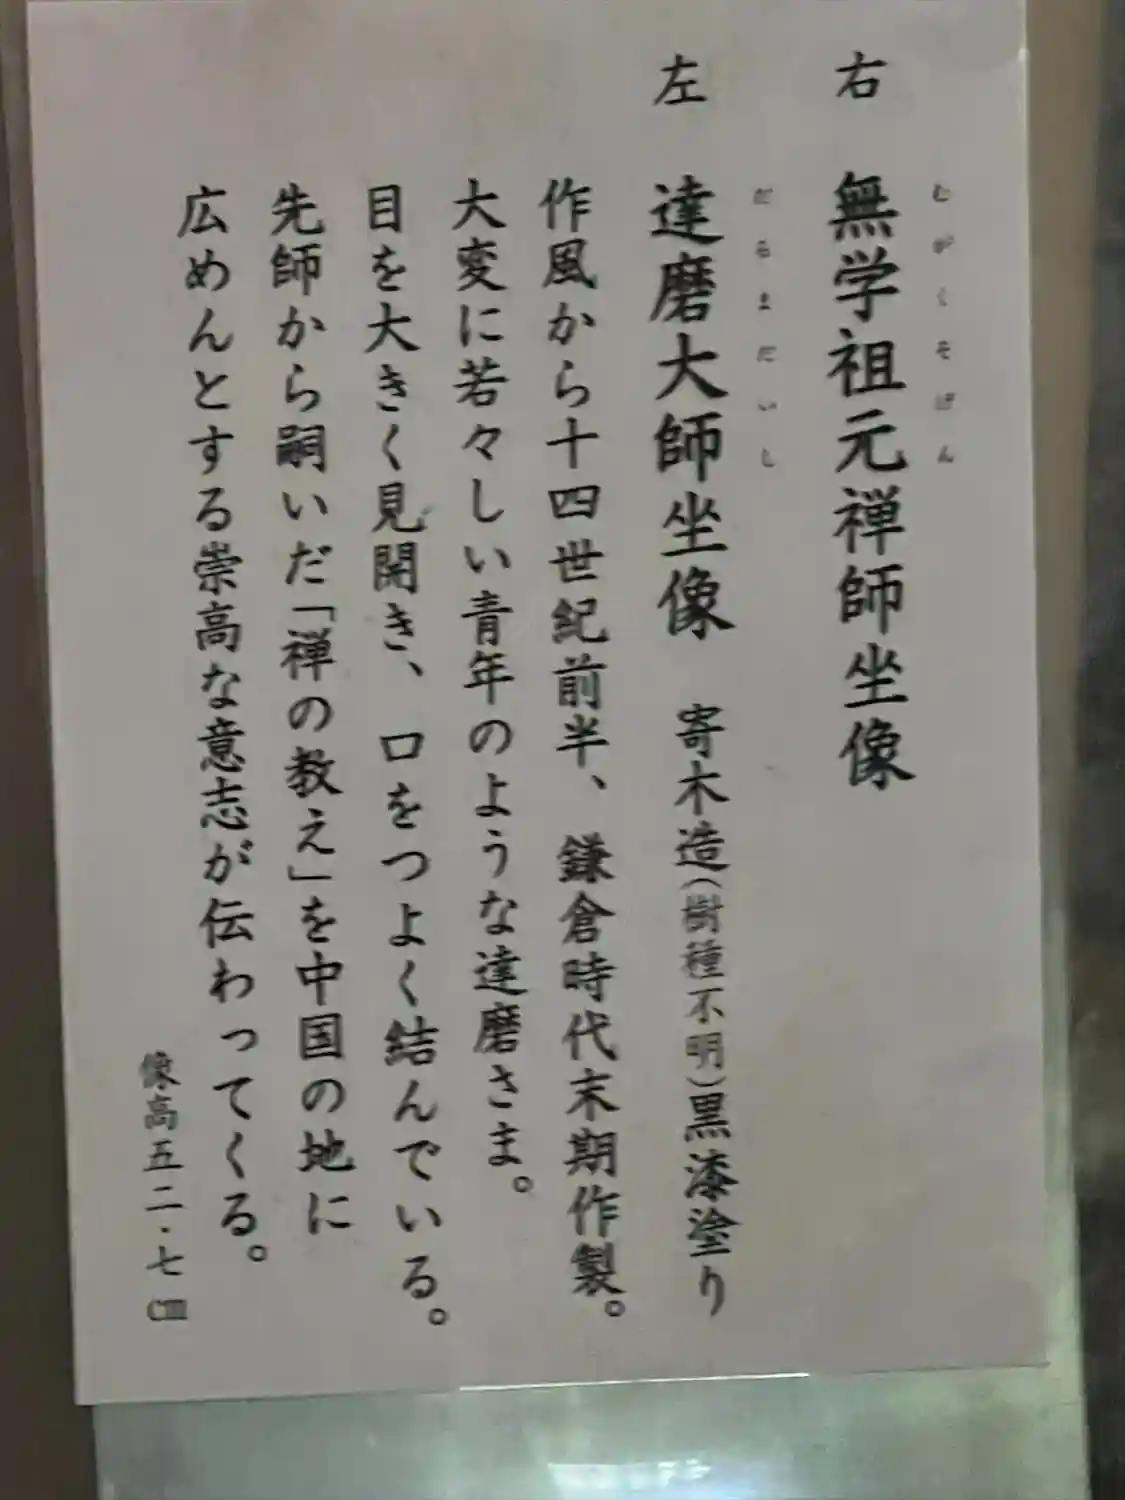 右 無学祖元禅師坐像
むがくそげん
左 達磨大師坐像 寄木造(樹種不明)黒漆塗り
だるまだいし
作風から十四世紀前半、鎌倉時代末期作製。
大変に若々しい青年のような達磨さま。
目を大きく見開き、口をつよく結んでいる。
先師から嗣いだ「禅の教え」を中国の地に
広めんとする崇高な意志が伝わってくる。
像高五二・七cm